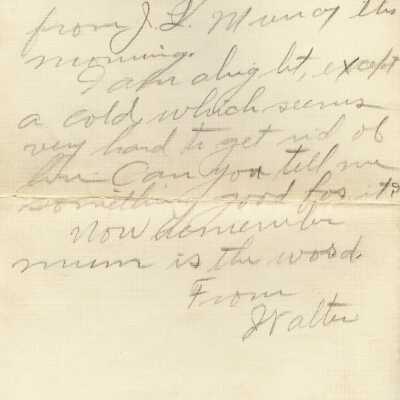 from J. L. Murray this
morning.
I am alright, except
a cold which seems
very hard to get rid of
here. Can you tell me
something good for it?
Now remember
mum is the word.
From
Walter